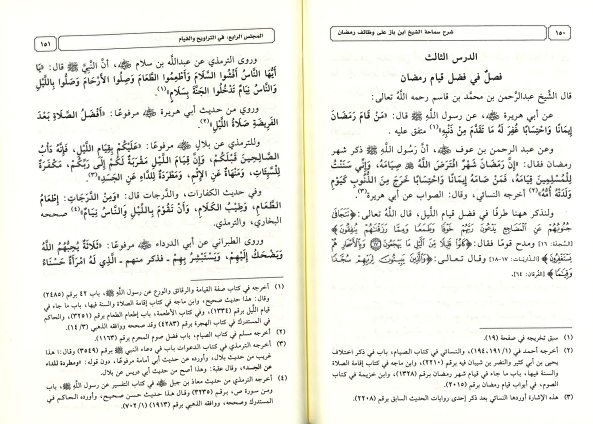 ١٥٠
شرح سماحة الشيخ ابن باز على وظائف رمضان
الدرس الثالث
فصلٌ في فضل قيام رمضان
قال الشَّيخ عبدالرَّحمن بن محمَّد بن قاسم رحمه اللَّه تعالى:
عن أبي هريرة ﷺ، عن رسول اللَّه ﷺ قال: «مَنْ قَامَ رَمَضَانَ
إِيمَانًا وَاحْتِسَابًا غُفِرَ لَهُ مَا تَقَدَّمَ مِنْ ذَنْبِهِ»(١) متفق عليه.
وعن عبد الرحمن بن عوف، أنَّ رَسُول اللَّهِ ﷺ ذكر شهر
رمضان فقال: «إِنَّ رَمَضَانَ شَهْرٌ افْتَرَضَ اللَّهُ صِيَامَهُ، وَإِنِّي سَنَنْتُ
لِلْمُسْلِمِينَ قِيَامَهُ، فَمَنْ صَامَهُ إِيمَانًا وَاحْتِسَابًا خَرَجَ مِنَ الذُّنُوبِ كَيَوْمِ
وَلَدَتْهُ أُمُّهُ»(٢) أخرجه النسائي، وقال: الصواب عن أبي هريرة(٣)
ولنذكر ههنا طرفًا في فضل قيام اللَّيل، قال اللَّه تعالى: ﴿تَتَجَافَىٰ
جُنُوبُهُمْ عَنِ الْمَضَاجِعِ يَدْعُونَ رَبَّهُمْ خَوْفًا وَطَمَعًا وَمِمَّا رَزَقْنَاهُمْ يُنفِقُونَ﴾
[السَّجدة: ١٦] ومدح قومًا فقال: ﴿كَانُوا قَلِيلًا مِّنَ اللَّيْلِ مَا يَهْجَعُونَ ۝ وَبِالْأَسْحَارِ هُمْ
يَسْتَغْفِرُونَ﴾ [الذَّاريات: ١٧-١٨] وقال تعالى: ﴿وَالَّذِينَ يَبِيتُونَ لِرَبِّهِمْ سُجَّدًا
وَقِيَامًا﴾ [الفُرقان: ٦٤].
(١) سبق تخريجه في صفحة (١٩).
(٢) أخرجه أحمد في (١/ ١٩١، ١٩٤)، والنسائي في كتاب الصيام، باب في ذكر اختلاف
يحيى بن أبي كثير والنضر بن شيبان فيه برقم (٢٢١٠)، وابن ماجه في كتاب إقامة الصلاة
والسنة فيها، باب ما جاء في قيام شهر رمضان برقم (١٣٢٨)، وابن خزيمة في كتاب
الصوم، في أبواب قيام رمضان برقم (٢٠١٥).
(٣) هذه الإشارة أوردها النسائي بعد ذكر إحدى روايات الحديث السابق برقم (٢٢٠٨).
المجلس الرابع: في التراويح والقيام
١٥١
وروى الترمذي عن عبداللَّه بن سلام، أنَّ النَّبِيَّ ﷺ قال: «يَا
أَيُّهَا النَّاسُ أَفْشُوا السَّلَامَ وَأَطْعِمُوا الطَّعَامَ وَصِلُوا الْأَرْحَامَ وَصَلُّوا بِاللَّيْلِ
وَالنَّاسُ نِيَامٌ تَدْخُلُوا الْجَنَّةَ بِسَلَامٍ»(١).
وروي من حديث أبي هريرة مرفوعًا: «أَفْضَلُ الصَّلَاةِ بَعْدَ
الْفَرِيضَةِ صَلَاةُ اللَّيْلِ»(٢).
وللترمذي عن بلال مرفوعًا: «عَلَيْكُمْ بِقِيَامِ اللَّيْلِ، فَإِنَّهُ دَأْبُ
الصَّالِحِينَ قَبْلَكُمْ، وَإِنَّ قِيَامَ اللَّيْلِ مَقْرَبَةٌ لَكُمْ إِلَى رَبِّكُمْ، مَكْفَرَةٌ
لِلسَّيِّئَاتِ، وَمَنْهَاةٌ عَنِ الْإِثْمِ، وَمَطْرَدَةٌ لِلدَّاءِ عَنِ الْجَسَدِ»(٣)
وفي حديث الكفارات، والدَّرجات قال: «وَمِنَ الدَّرَجَاتِ: إِطْعَامُ
الطَّعَامِ، وَطِيبُ الْكَلَامِ، وَأَنْ تَقُومَ بِاللَّيْلِ وَالنَّاسُ نِيَامٌ»(٤) صححه
البخاري، والترمذي.
وروى الطبراني عن أبي الدرداء مرفوعًا: «ثَلَاثَةٌ يُحِبُّهُمُ اللَّهُ
وَيَضْحَكُ إِلَيْهِمْ، وَيَسْتَبْشِرُ بِهِمْ - فذكر منهم - الَّذِي لَهُ امْرَأَةٌ حَسْنَاءُ
(١) أخرجه في كتاب صفة القيامة والرقائق والورع عن رسول اللَّه ﷺ، باب ٤٢ برقم (٢٤٨٥)
وقال: هذا حديث صحيح، وابن ماجه في كتاب إقامة الصلاة والسنة فيها، باب ما جاء في
قيام اللَّيل برقم (١٣٣٤)، وفي كتاب الأطعمة، باب إطعام الطعام برقم (٣٢٥١)، والحاكم
في المستدرك في كتاب الهجرة برقم (٤٢٨٣) وقد صححه ووافقه الذهبي (٣/ ١٤)
(٢) أخرجه مسلم في كتاب الصيام، باب فضل صوم المحرم برقم (١١٦٣).
(٣) أخرجه الترمذي في كتاب الدعوات باب في دعاء النبي ﷺ برقم (٣٥٤٩) وقال: هذا
غريب من حديث بلال، وأورده عن حديث أبي أمامة مرفوعًا، دون قوله: «ومطردة للداء
عن الجسد»، وقال عقبة: وهذا أصح من حديث أبي دريس عن بلال.
(٤) أخرجه الترمذي من حديث معاذ بن جبل في كتاب التفسير عن رسول اللَّه ﷺ، باب
ومن سورة ص، برقم (٣٢٣٥) وقال: هذا حديث حسن صحيح، وأورده الحاكم في
المستدرك وصححه، ووافقه الذهبي برقم (١٩١٣) (١/ ٧٠٢).